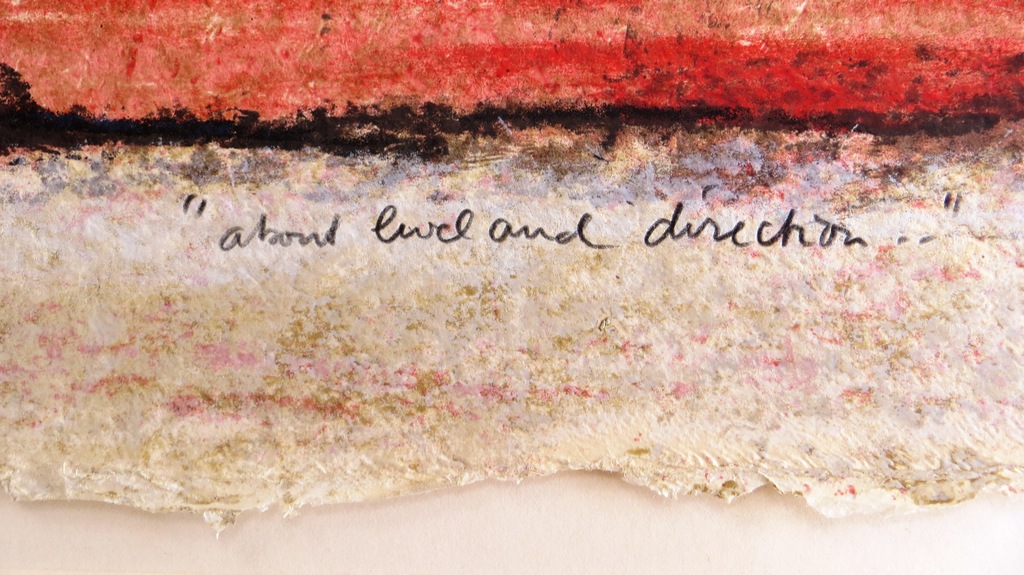 "about level and direction..."